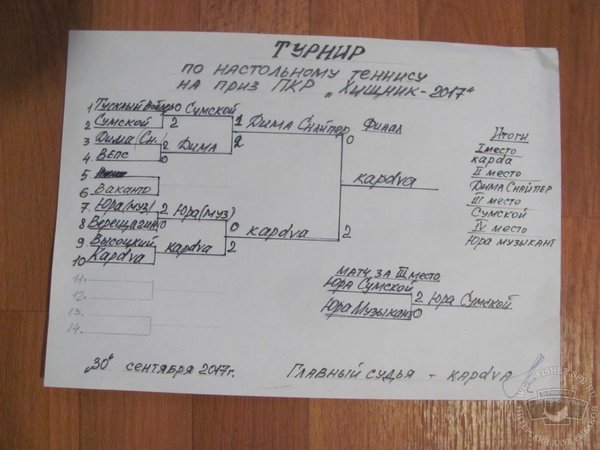 ТУРНИР
ПО НАСТОЛЬНОМУ ТЕННИСУ
НА ПРИЗ ПКР „ХИЩНИК-2017"
1 Тусклый 0 Сумской
2 Сумской 2
1 Дима Снайпер
Финал
3 Дима (Сн.) 2 Дима
2
0
4 ВЕПС 0
5
6 Вакант
kapdva
7. Юра (муз) 2 Юра (муз)
0
8 Верещагин 0
kapdva
2
9 Высоцкий
kapdva
2
10 Kapdva
11.
12.
13.
14.
Итоги
I место
карда
II место
Дима Снайпер
III место
Сумской
IV место
Юра музыкант
МАТЧ ЗА III МЕСТО
Юра Сумской 2 Юра Сумской
Юра Музыкант 0
„30" сентября 2017г.
Главный судья - kapdva
WWW.FISHER.SPB.RU
ПИТЕРСКИЙ КЛУБ РЫБАКОВ